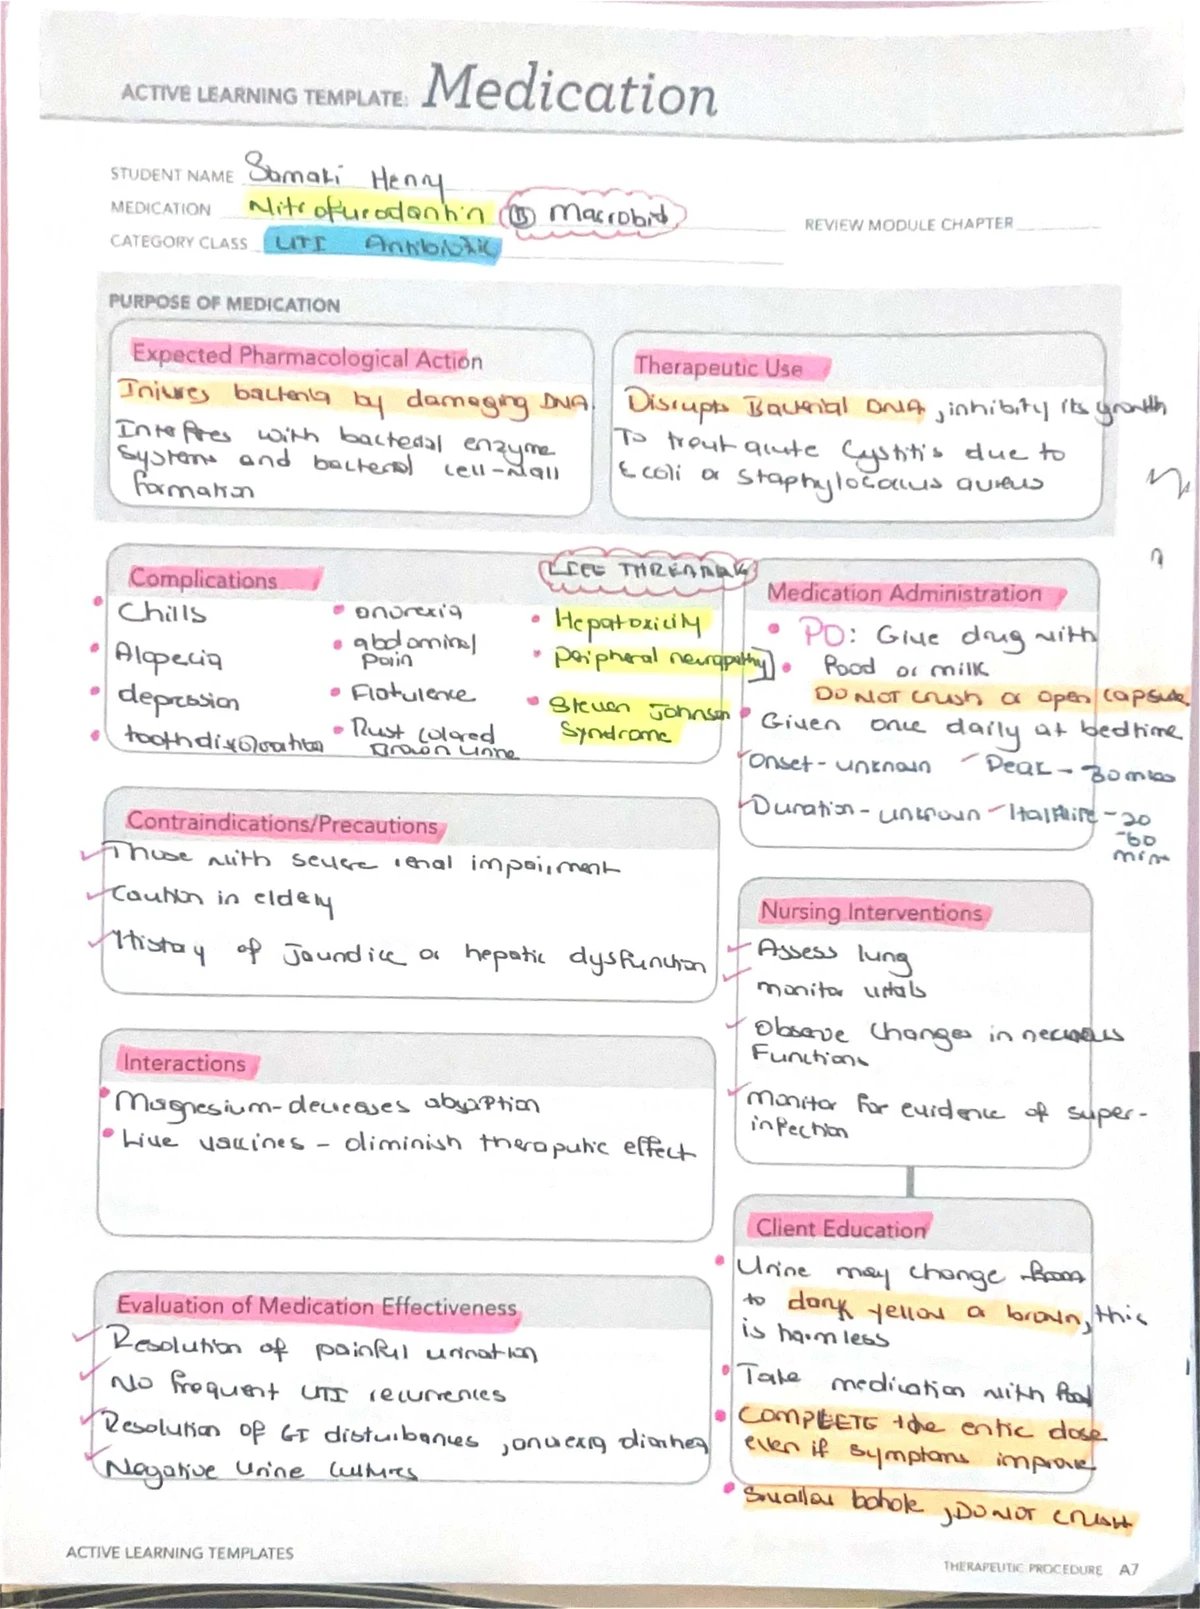 ACTIVE LEARNING TEMPLATE: Medication
STUDENT NAME Samaki Henry
MEDICATION Nitrofurodantin (B) Macrobid
REVIEW MODULE CHAPTER
CATEGORY CLASS UTI Antibiotic
PURPOSE OF MEDICATION
Expected Pharmacological Action
Injures bacteria by damaging DNA.
Interferes with bacterial enzyme
systems and bacterial cell-wall
formation
Therapeutic Use
Disrupts Bacterial DNA, inhibity its growth
To treat acute Cystitis due to
E coli or Staphylococcus aureus
Complications
LIFE THREATNING
Chills
Alopecia
depression
tooth discoloration
anorexia
abdominal
pain
Flatulence
Rust colored
Brown urine
Hepatoxicity
peripheral neuropathy
Steven Johnson
Syndrome
Medication Administration
PO: Give drug with
food or milk
DO NOT crush or open capsule
Given once daily at bedtime
Onset - unknown Peak - 30 mins
Duration - unknown Half life - 20
-60
mins
Contraindications/Precautions
Those with severe renal impairment
Caution in elderly
History of Jaundice or hepatic dysfunction
Nursing Interventions
Assess lung
monitor vitals
Observe Changes in nervous
Functions
Monitor for evidence of super-
infection
Interactions
Magnesium-decreases absorption
Live vaccines - diminish theraputic effect
Client Education
Urine may change
to dark yellow or brown, this
is harmless
Take medication with food
COMPLETE the entire dose
even if symptoms improve
Swallow whole, DO NOT crush
Evaluation of Medication Effectiveness
Resolution of painful urination
No frequent UTI recurrences
Resolution of GI disturbances, anorexia diarrhea
Negative Urine Cultures
ACTIVE LEARNING TEMPLATES
THERAPEUTIC PROCEDURE A7